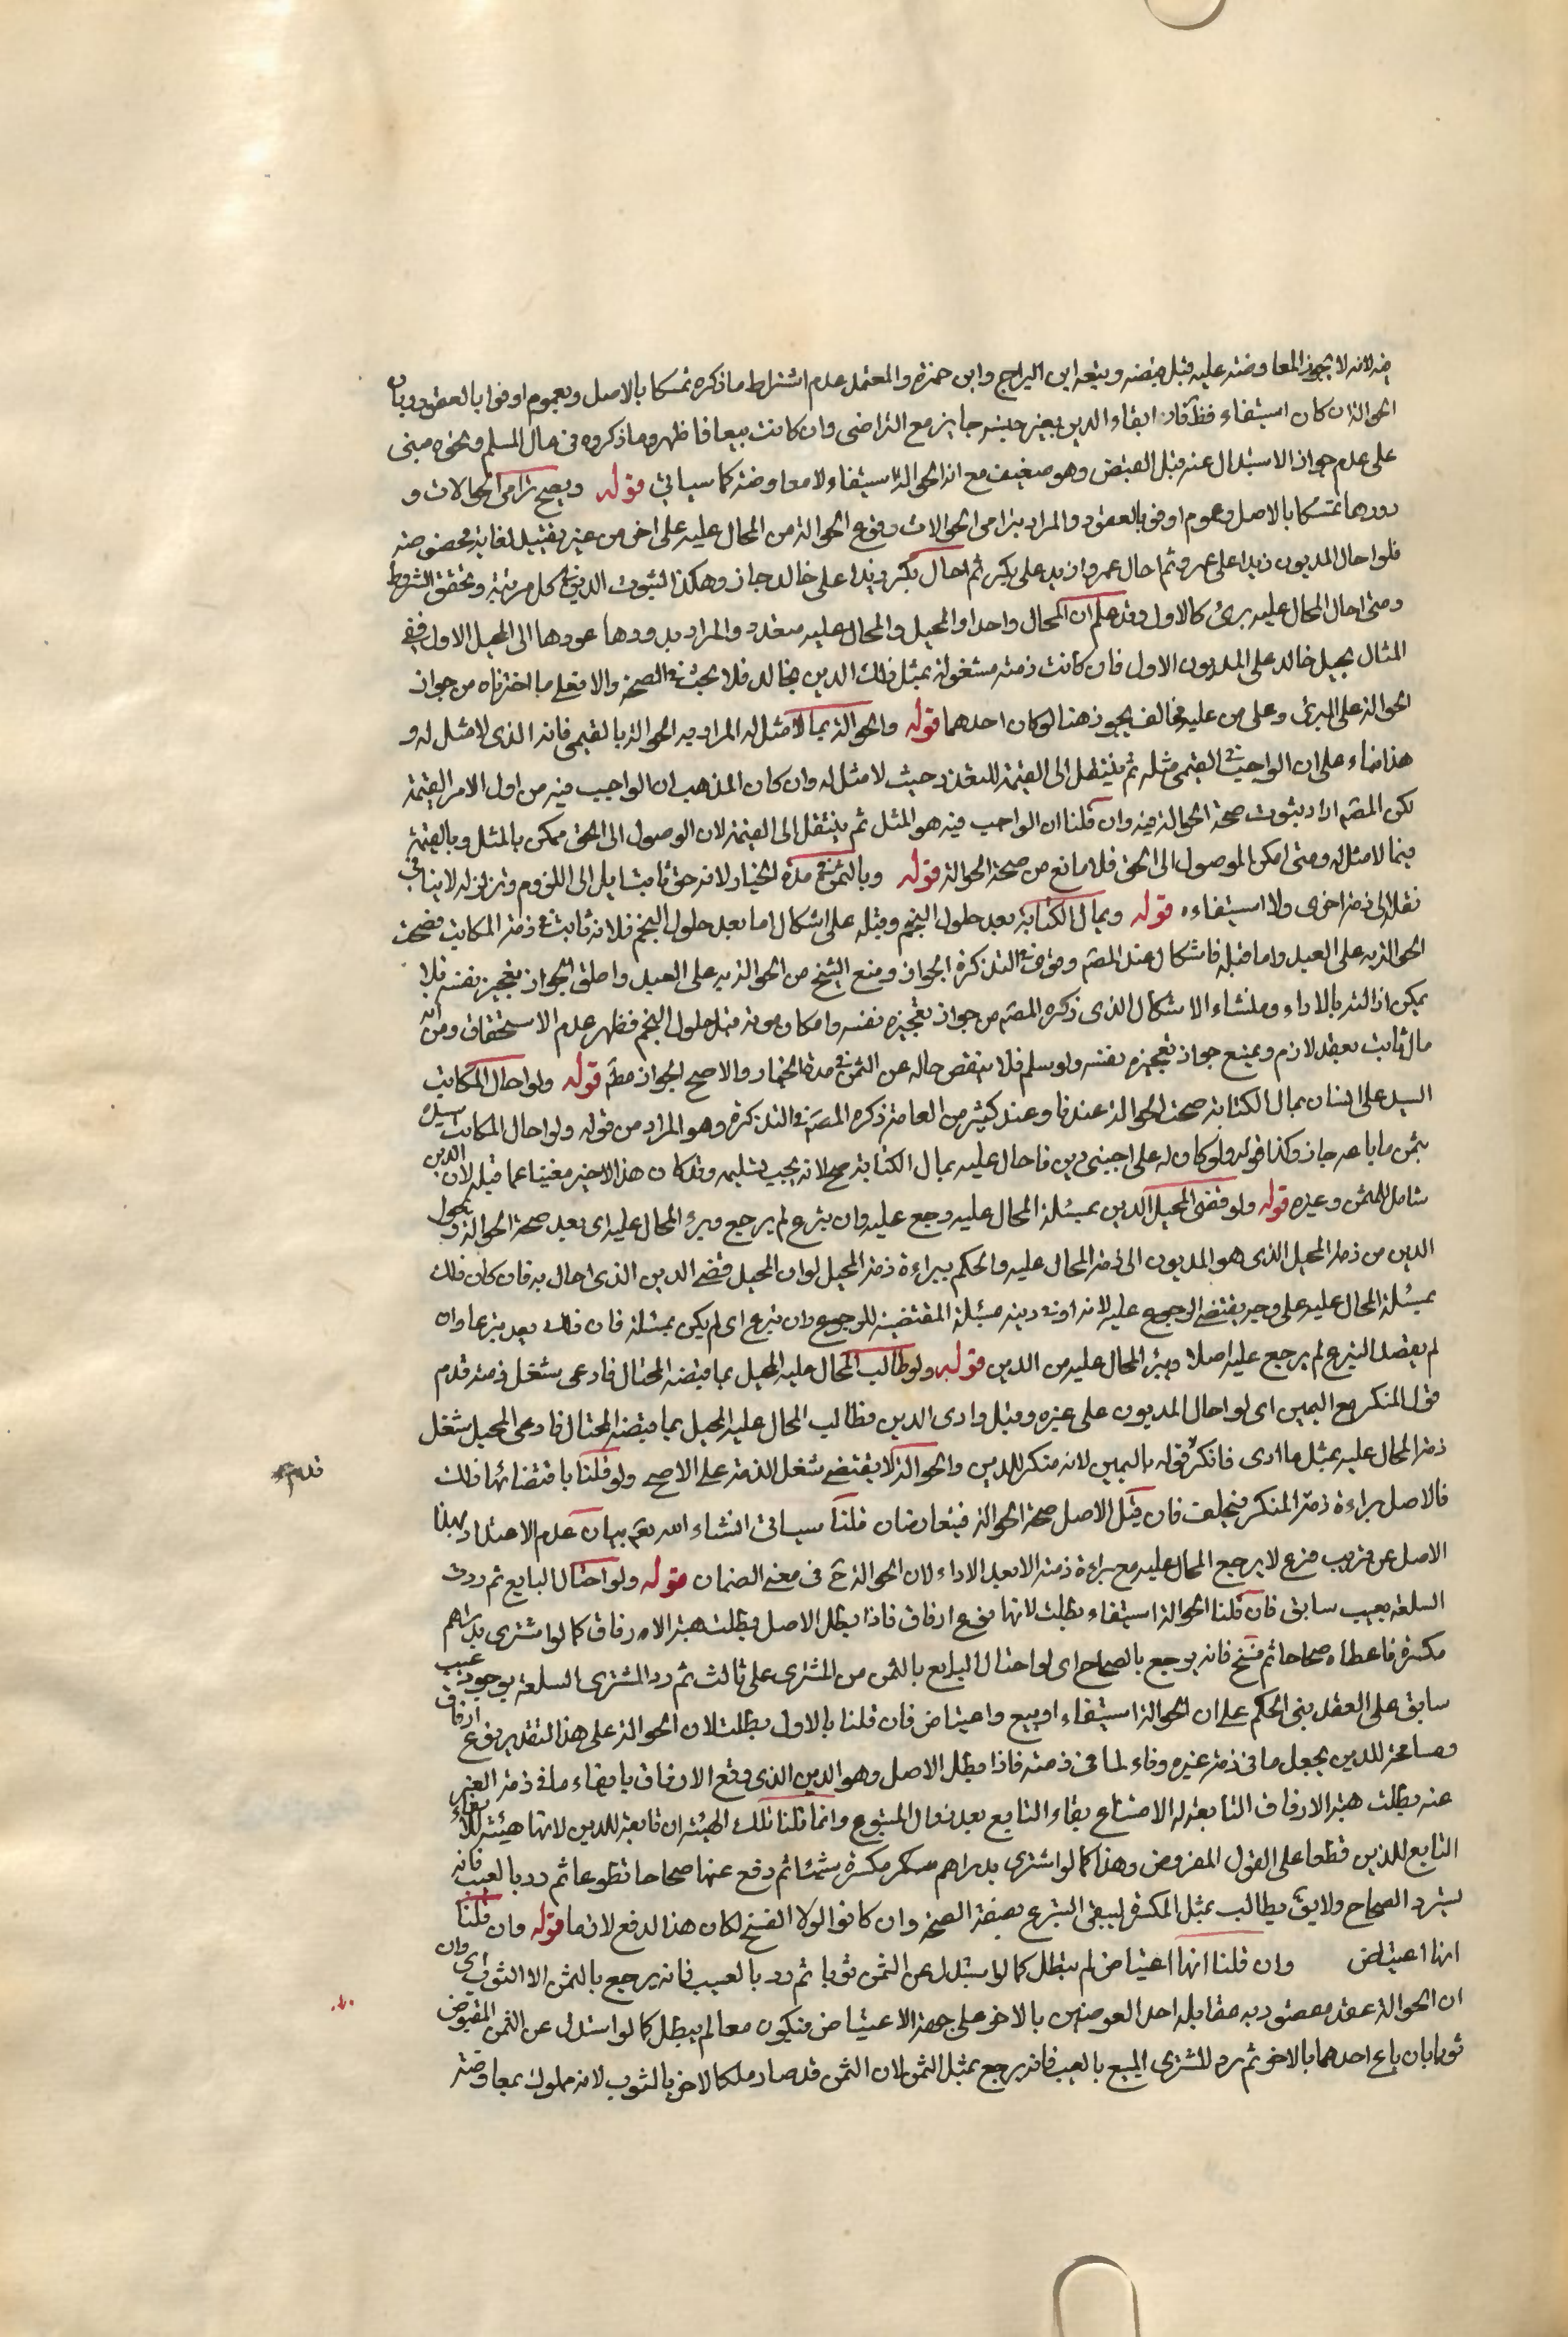 فيه لانه لا يجوز المعاوضة عليه قبل قبضه وتبعه ابن البراج وابن حمزة والمعتمد عدم اشتراط ما ذكره تمسكا بالاصل وبعموم اوفوا بالعقود وبان
الحوالة ان كان استيفاء فظ فان ايفاء الدين بغير جنسه جايز مع التراضي وان كانت بيعا فاظهر وما ذكروه في مال المسلم ونحوه مبنى
على عدم جواز الاستبدال عنه قبل القبض وهو ضعيف مع ان الحوالة استيفاء لا معاوضة كما سياتي قوله ويصح ترامى الحوالات و
دورها تمسكا بالاصل وعموم اوفوا بالعقود والمراد بترامى الحوالات وقوع الحوالة من المحال عليه على اخر من غير تقييد لغاية مخصوصة
فلو احال المديون زيدا على عمرو ثم احال عمرو ازيد على بكر ثم احال بكر زيدا على خالد جاز وهكذا لثبوت الدين في كل مرتبة وتحقق الشروط
ومتى احال المحال عليه برئ كالاول وقد علم ان المحال واحدا والمحيل والمحال عليه متعدد والمراد بدورها عودها الى المحيل الاول ففي
المثال يحيل خالد على المديون الاول فان كانت ذمته مشغولة بمثل ذلك الدين لخالد فلا بحث في الصحة والا فعلى ما اخترناه من جواز
الحوالة على البرئ وعلى من عليه مخالف يجوز هنا لو كان احدهما قوله والحوالة بما لا مثل له المراد به الحوالة بالقيمي فانه الذي لا مثل له و
هذا بناء على ان الواجب في القيمي مثله ثم ينتقل الى القيمة للتعذر حيث لا مثل له وان كان المذهب ان الواجب فيه من اول الامر القيمة
لكن المصم اراد بثبوت صحة الحوالة فيه وان قلنا ان الواجب فيه هو المثل ثم ينتقل الى القيمة لان الوصول الى الحق ممكن بالمثل وبالقيمة
فيما لا مثل له ومتى امكن الموصول الى الحق فلا مانع من صحة الحوالة قوله وبالثمن في مدة الخيار لانه حق ثابت ايل الى اللزوم وتزلزله لا ينافي
نقله الى ذمة اخرى ولا استيفاءه قوله وبمال الكتابة بعد حلول النجم وقبله على اشكال اما بعد حلول النجم فلانه ثابت في ذمة المكاتب فصحت
الحوالة به على العبد واما قبله فاشكال عند المصم وموافقه التذكرة الجواز ومنع الشيخ من الحوالة به على العبد واطلق الجواز تعجيز نفسه فلا
يمكن الزامه بالاداء ومنشاء الاشكال الذي ذكره المصم من جواز تعجيزه نفسه وامكان موته قبل حلول النجم فظهر عدم الاستحقاق ومن انه
مال ثابت بعقد لازم ويمنع جواز تعجيزه نفسه ولو سلم فلا ينقص حاله عن الثمن في مدة الخيار والاصح الجواز مطم قوله ولو احال المكاتب
السيد على انسان بمال الكتابة صحت الحوالة عندنا وعند كثير من العامة ذكره المصم في التذكرة وهو المراد من قوله ولو احال المكاتب سيده
بثمن ما باعه جاز وكذا قوله ولو كان له على اجنبي دين فاحال عليه بمال الكتابة صح لانه يجب تسليمه وقد كان هذا الاخير مغنيا عما قبله لان الدين
شامل للثمن وغيره قوله ولو قضى المحيل الدين بمسئلة المحال عليه رجع عليه وان تبرع لم يرجع وبرئ المحال عليه اى بعد صحة الحوالة وتحول
الدين من ذمة المحيل الذي هو المديون الى ذمة المحال عليه والحكم ببراءة ذمة المحيل لو ان المحيل قضى الدين الذي احال به فان كان ذلك
بمسئلة المحال عليه على وجه يقتضى الرجوع عليه لانه اوفى دينه مسئلة المقتضية للرجوع وان تبرع اى لم يكن بمسئلة فان ذلك يعد تبرعا وان
لم يقصد التبرع لم يرجع عليه اصلا ويبرئ المحال عليه من الدين قوله ولو طالب المحال عليه المحيل بما قبضه المحتال فادعى شغل ذمته قدم
قول المنكر مع اليمين اى لو احال المديون على غيره وقبل وادى الدين فطالب المحال عليه المحيل بما قبضه المحتال فادعى المحيل شغل
ذمة المحال عليه بمثل ما ادى فانكر قوله باليمين لانه منكر للدين والحوالة لا يقتضي شغل الذمة على الاصح ولو قلنا باقتضائها ذلك
قدم
فالاصل براءة ذمة المنكر فيحلف فان قيل الاصل صحة الحوالة فيتعارضان قلنا سياتي انشاء الله تعم بيان عدم الاعتداد بهذا
الاصل عن قريب فرع لا يرجع المحال عليه مع براءة ذمته الا بعد الاداء لان الحوالة ح في معنى الضمان قوله ولو احتال البايع ثم ردت
السلعة بعيب سابق فان قلنا الحوالة استيفاء بطلت لانها نوع ارفاق فاذا بطل الاصل بطلت هيئة الارفاق كما لو اشترى بدراهم
مكسرة فاعطاه صحاحا ثم فسخ فانه يرجع بالصحاح اى لو احتال البايع بالثمن من المشترى على ثالث ثم رد المشترى السلعة بوجود عيب
سابق على العقد بنى الحكم على ان الحوالة استيفاء او بيع واعتياض فان قلنا بالاول بطلت لان الحوالة على هذا التقدير نوع ارفاق
ومسامحة للدين بجعل ما في ذمة غيره وفاء لما في ذمته فاذا بطل الاصل وهو الدين الذي وقع الارفاق بايفاء ما في ذمة الغير
عنه بطلت هيئة الارفاق التابعة له لامتناع بقاء التابع بعد زوال المتبوع وانما قلنا تلك الهيئة ان تابعة للدين لانها هيئة للايفاء
التابع للدين قطعا على القول المفروض وهذا كما لو اشترى بدراهم مكسرة شيئا ثم دفع عنها صحاحا تطوعا ثم رد بالعيب فانه
يسترد الصحاح ولا يق يطالب بمثل المكسرة ليبقى التبرع بصفة الصحة وان كانوا لولا الفسخ لكان هذا الدفع لازما قوله وان قلنا
انها اعتياض وان قلنا انها اعتياض لم يبطل كما لو استبدل عن الثمن ثوبا ثم رد بالعيب فانه يرجع بالثمن الا الثوب اى وان
ان الحوالة عقد مقصود به مقابلة احد العوضين بالاخر على جهة الاعتياض فيكون معا لم يبطل كما لو استبدل عن الثمن المقبوض
ثوبا بان باع احدهما بالاخر ثم يرد المشترى المبيع بالعيب فانه يرجع بمثل الثمن لان الثمن قد صار ملكا للاخر بالثوب لانه مملوك بمعاوضة